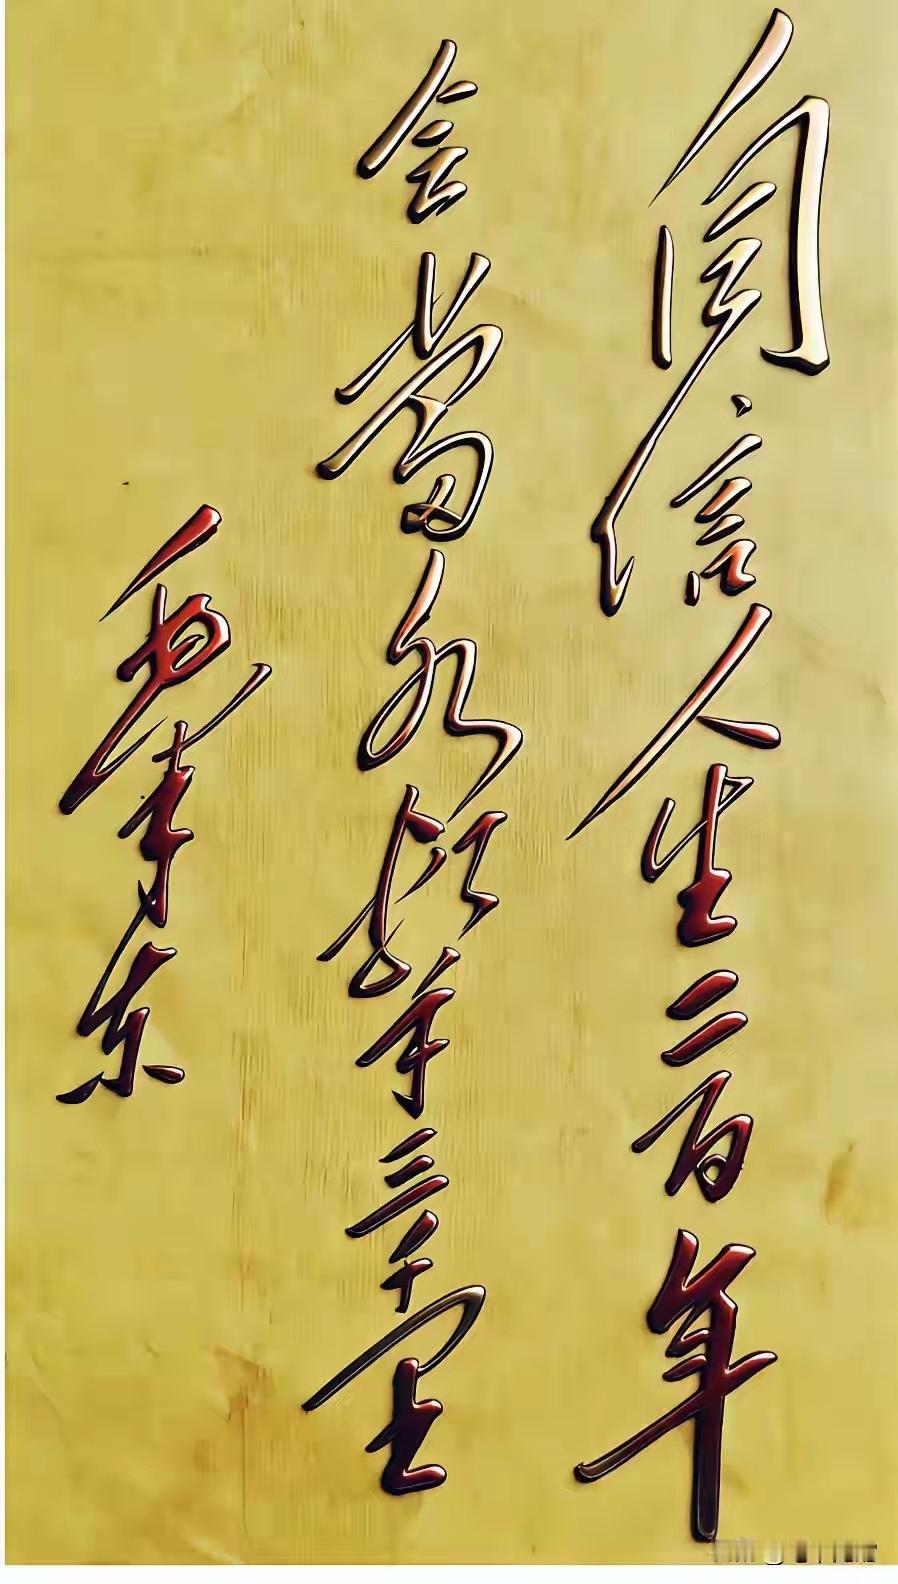 自信人生二百年
会当水击三千里
毛泽东